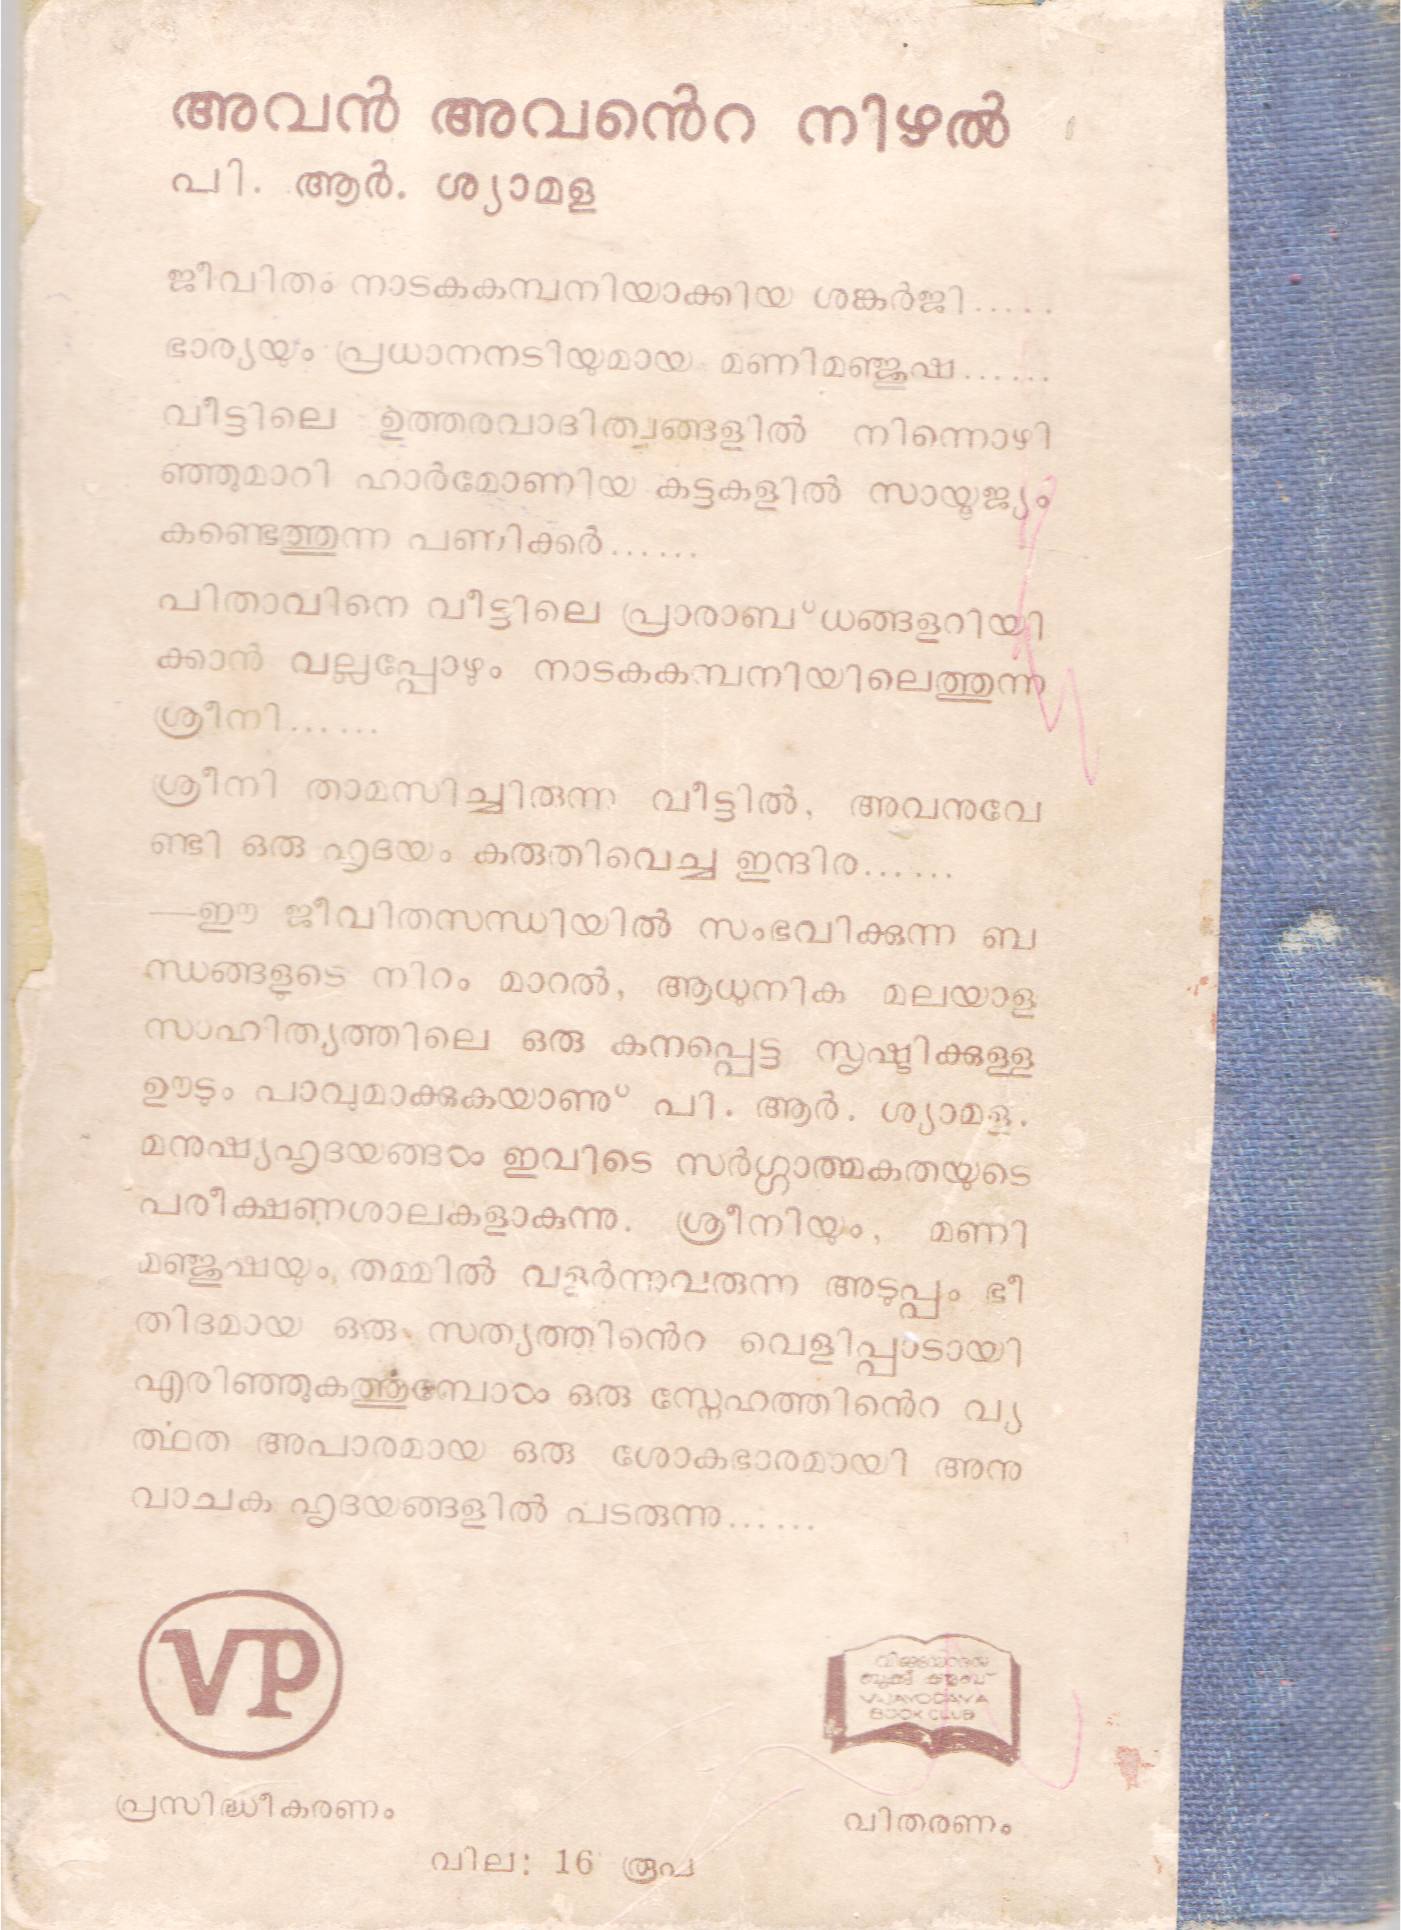 അവൻ അവൻെറ നിഴൽ
പി. ആർ. ശ്യാമള
ജീവിതം നാടകകമ്പനിയാക്കിയ ശങ്കർജി.....
ഭാര്യയും പ്രധാനനടിയുമായ മണിമഞ്ജുഷ......
വീട്ടിലെ ഉത്തരവാദിത്വങ്ങളിൽ നിന്നൊഴി
ഞ്ഞുമാറി ഹാർമോണിയ കട്ടകളിൽ സായൂജ്യം
കണ്ടെത്തുന്ന പണിക്കർ......
പിതാവിനെ വീട്ടിലെ പ്രാരാബ്ധങ്ങളറിയി
ക്കാൻ വല്ലപ്പോഴും നാടകകമ്പനിയിലെത്തുന്ന
ശ്രീനി......
ശ്രീനി താമസിച്ചിരുന്ന വീട്ടിൽ, അവനുവേ
ണ്ടി ഒരു ഹൃദയം കരുതിവെച്ച ഇന്ദിര......
—ഈ ജീവിതസന്ധിയിൽ സംഭവിക്കുന്ന ബ
ന്ധങ്ങളുടെ നിറം മാറൽ, ആധുനിക മലയാള
സാഹിത്യത്തിലെ ഒരു കനപ്പെട്ട സൃഷ്ടിക്കുള്ള
ഊടും പാവുമാക്കുകയാണു് പി. ആർ. ശ്യാമള.
മനുഷ്യഹൃദയങ്ങൾ ഇവിടെ സർഗ്ഗാത്മകതയുടെ
പരീക്ഷണശാലകളാകുന്നു. ശ്രീനിയും, മണി
മഞ്ജുഷയും, തമ്മിൽ വളർന്നുവരുന്ന അടുപ്പം ഭീ
തിദമായ ഒരു സത്യത്തിൻെറ വെളിപ്പാടായി
എരിഞ്ഞുകത്തുമ്പോൾ ഒരു സ്നേഹത്തിൻെറ വ്യ
ർത്ഥത അപാരമായ ഒരു ശോകഭാരമായി അനു
വാചക ഹൃദയങ്ങളിൽ പടരുന്നു......
VP
വിജയോദയ
ബുക്ക് ക്ലബ്
VIJAYODAYA
BOOK CLUB
പ്രസിദ്ധീകരണം
വിതരണം
വില: 16 രൂപ